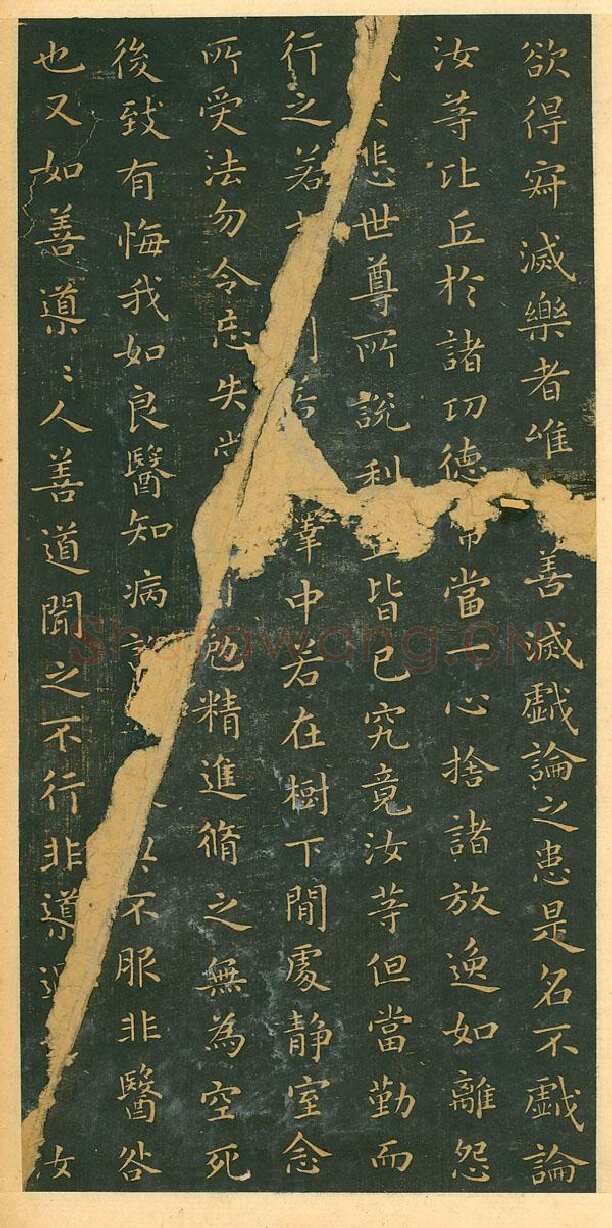 欲得寂滅樂者唯善滅戲論之患是名不戲論
汝等比丘於諸功德當一心捨諸放逸如離怨
悲世尊所說利皆已究竟汝等但當勤而
行之若澤中若在樹下閒處静室念
所受法勿令忘失勉精進脩之無為空死
後致有悔我如良醫知病不服非醫咎
也又如善導:人善道聞之不行非導過汝
Sharewang.CN